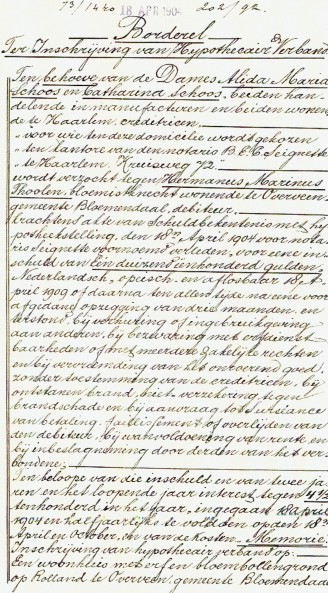 73/1440 18 APR 1904 202/92.
Borderel
Ter Inschrijving van Hypothecair Verband
Ten behoeve van de Dames Alida Maria
Schoos en Catharina Schoos, beiden han-
delende in manufacturen en beiden wonen
de te Haarlem, creditricen.
"voor wie ten deze domicilie wordt gekozen
"ten kantore van den notaris B. E. C. Seignette
"te Haarlem, Kruisweg 72.
wordt verzocht tegen Hermanus Marinus
Thoolen, bloemistknecht wonende te Overveen
gemeente Bloemendaal, debiteur.
krachtens akte van schuldbekentenis met hy
potheekstelling, den 18en April 1904 voor nota
ris Seignette voornoemd verleden, voor eene in
schuld van Een duizend éénhonderd gulden,
Nederlandsch, opeisch- en aflosbaar 18 A
pril 1909 of daarna ten allen tijde na eene voor
afgaande opzegging van drie maanden, en
terstond bij verhuring of ingebruikgeving
aan anderen, bij bezwaring met erfdienst
baarheden of met meerdere zakelijke rechten
en bij vervreemding van het onroerend goed,
zonder toestemming van de creditricen, bij
ontstanen brand, niet verzekering tegen
brandschade en bij aanvraag tot surséance
van betaling, faillissement of overlijden van
den debiteur, bij wanvoldoening van rente en
bij inbeslagneming door derden van het ver-
bondene.
Ten beloope van die inschuld en van twee ja
ren en het loopende jaar interest tegen 4½
ten honderd in het jaar, ingegaan 18 april
1904 en halfjaarlijks te voldoen op den 18en
April en October, en van de kosten. Memorie.
Inschrijving van hypothecair verband op:
Een woonhuis met erf en bloembollengrond
op Rolland te Overveen, gemeente Bloemendaal